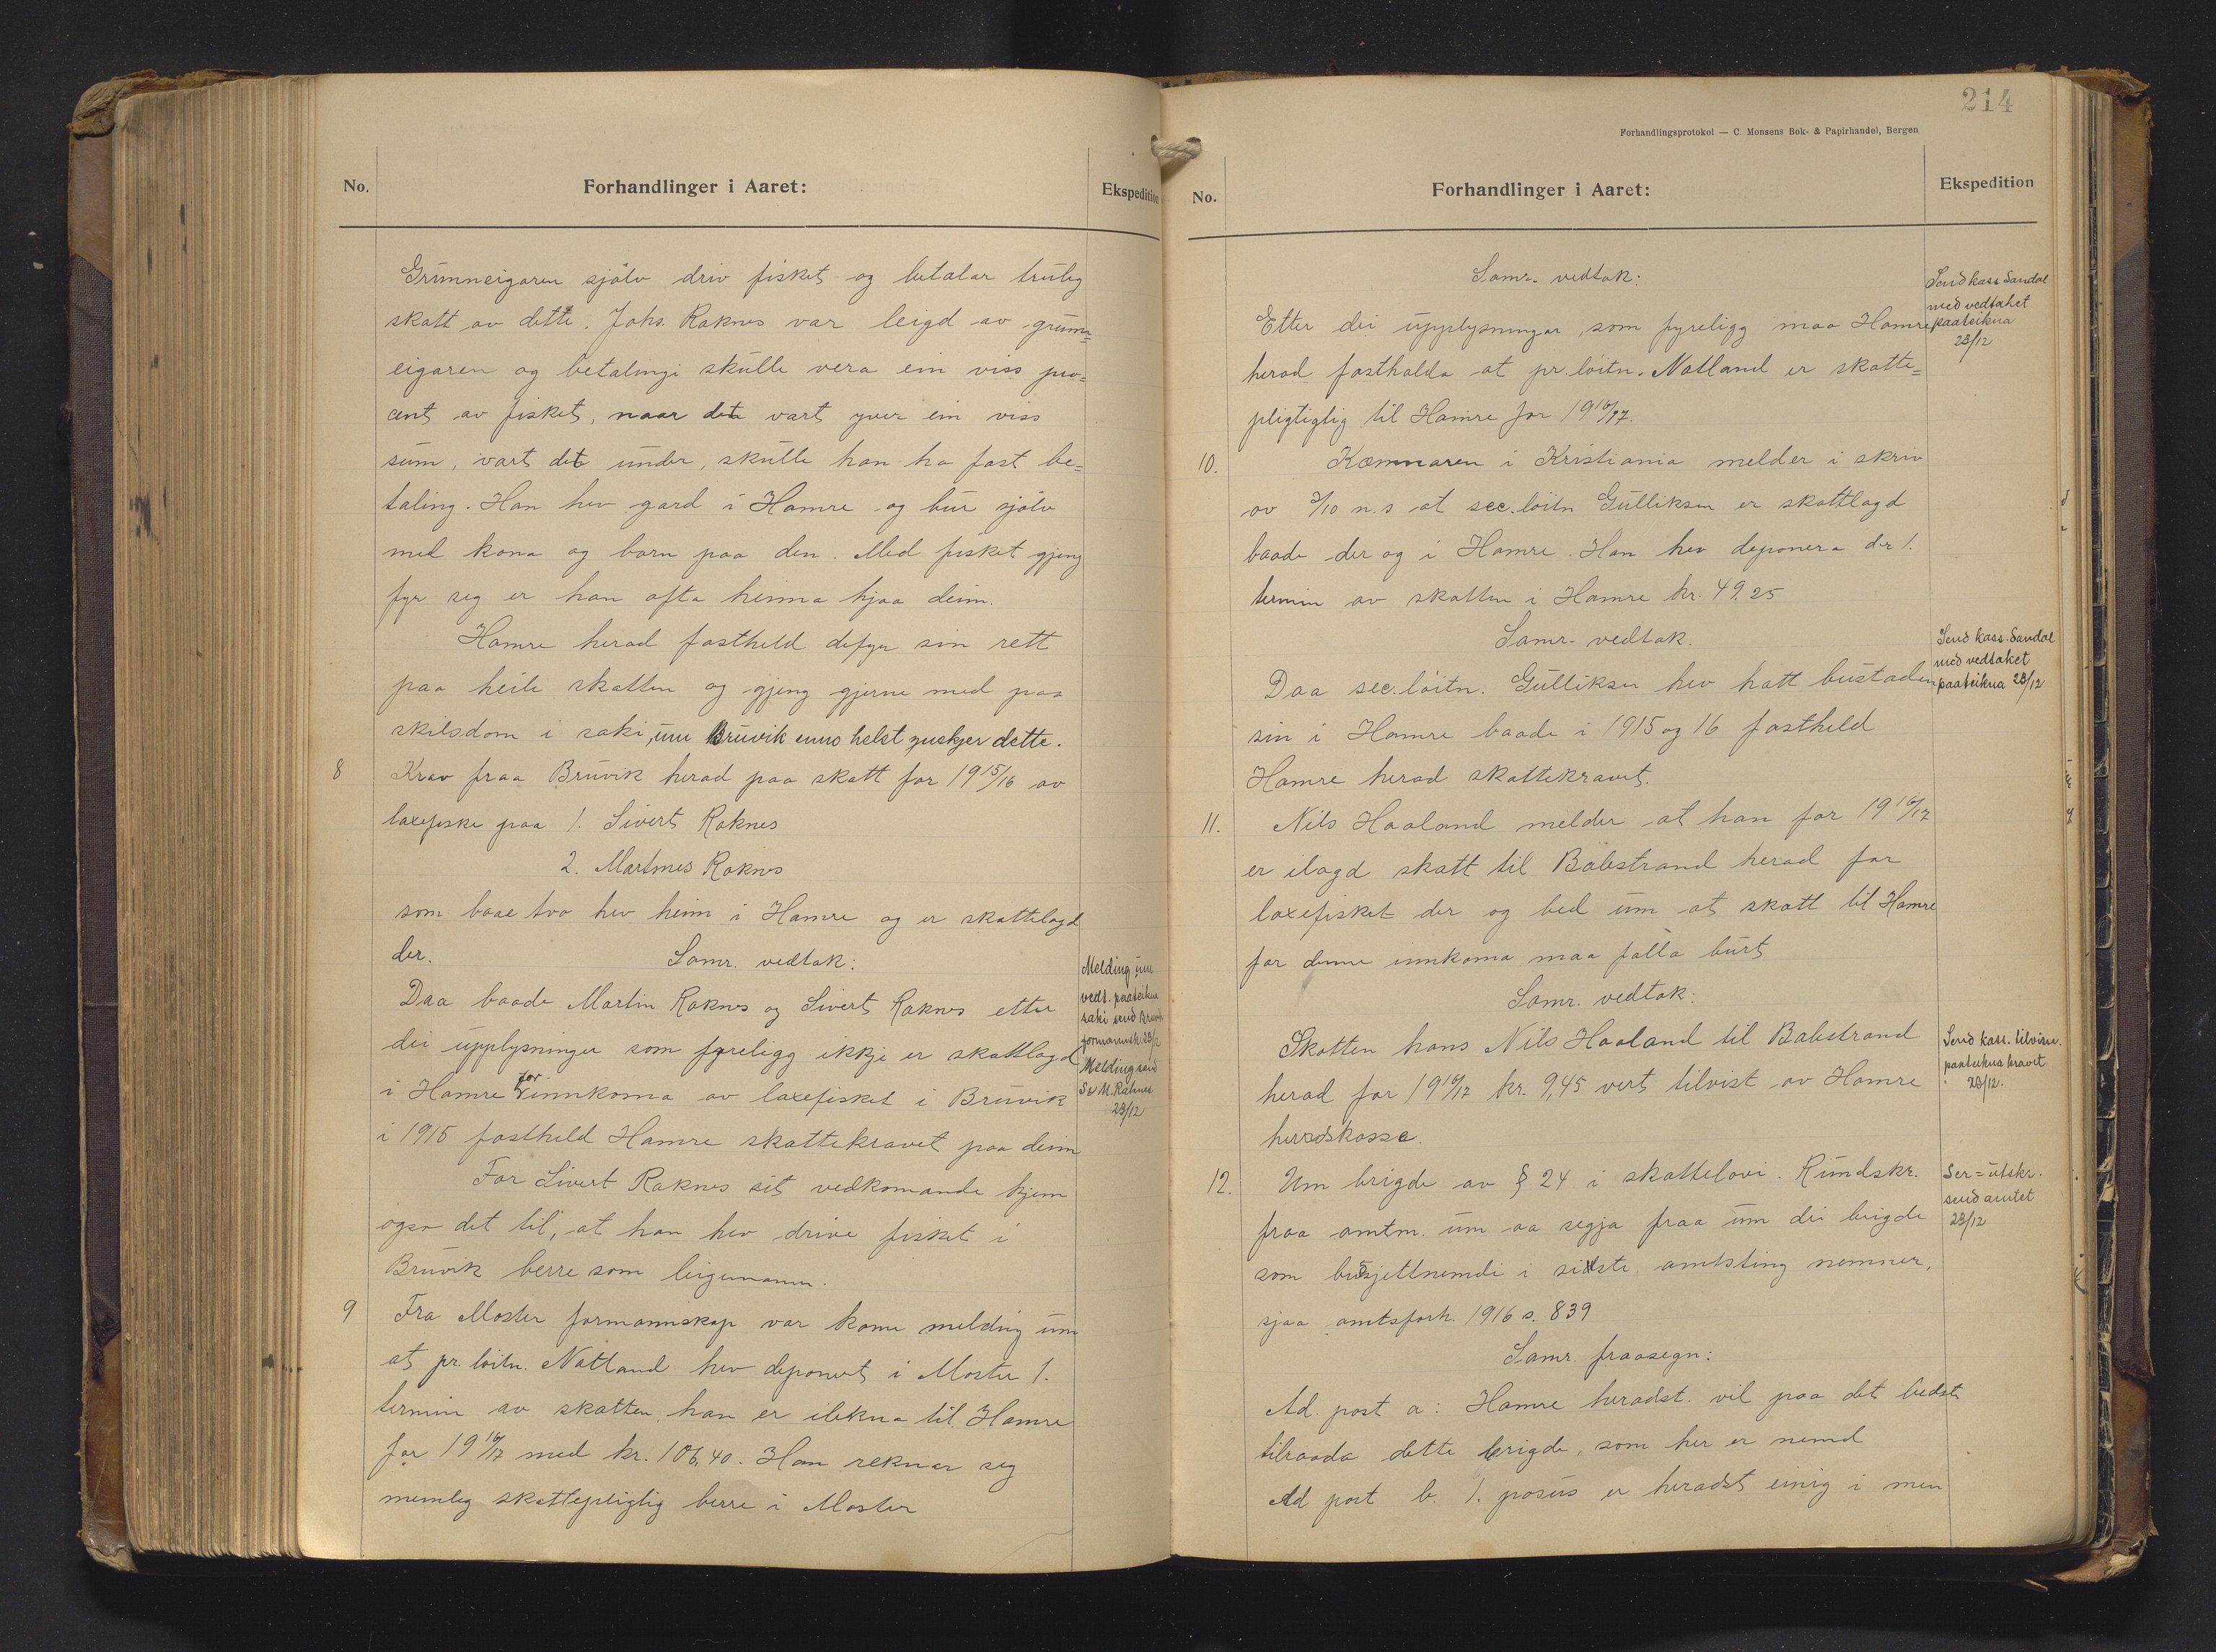 No.
Forhandlinger i Aaret:
Ekspedition
Grunneigaren sjølv driv fisket og betalar truleg
skatt av dette. Johs. Raknes var leigd av grunn=
eigaren og betalingi skulle vera ein viss pro=
cent av fisket, naar det vart yver ein viss
sum, vart det under, skulle han ha fast be=
taling. Han hev gard i Hamre og bur sjølv
med kona og born paa den. Med fisket gjeng
fyr seg er han ofta heima hjaa deim.
Hamre herad fastheld difyr sin rett
paa heile skatten og gjeng gjerne med paa
skilsdom i saki, um Bruvik enno helst ynskjer dette.
8 Krav fraa Bruvik herad paa skatt for 1915/16 av
laxefiske paa 1. Sivert Raknes
2. Martines Raknes
som baae tvo hev heim i Hamre og er skattelagd
der.
Samr. vedtak:
Daa baade Martin Raknes og Sivert Raknes etter
dei upplysningar som fyreligg ikkje er skattlagd
i Hamre for innkoma av laxefisket i Bruvik
i 1915 fastheld Hamre skattekravet paa deim
For Sivert Raknes sit vedkomande kjem
ogso det til, at han hev drive fisket i
Bruvik berre som leigemann.
Melding um
vedt. paateikna
saki send Bruvik
formannsk. 23/12
Melding send
S & M. Raknes
23/12
9 Fra Moster formannskap var kome melding um
at pr. løitn. Natland hev deponert i Moster 1.
termin av skatten han er ilikna til Hamre
for 1916/17 med kr. 106,40. Han reknar seg
nemleg skattepligtig berre i Moster
214
Forhandlingsprotokol — C. Monsens Bok- & Papirhandel, Bergen
No.
Forhandlinger i Aaret:
Ekspedition
Samr. vedtak:
Etter dei upplysningar, som fyreligg maa Hamre
herad fasthalda at pr. løitn. Natland er skatte=
pligtigtig til Hamre for 1916/17.
Send kass Sandal
med vedtaket
paateikna
23/12
10. Kæmnaren i Kristiania melder i skriv
av 3/10 n.s at sec. løitn Gulliksen er skattlagd
baade der og i Hamre. Han hev deponera der 1.
termin av skatten i Hamre kr. 49.25
Samr. vedtak.
Daa sec. løitn. Gulliksen hev hatt bustaden
sin i Hamre baade i 1915 og 16 fastheld
Hamre herad skattekravet.
Send kass. Sandal
med vedtaket
paateikna 23/12
11. Nils Haaland melder at han for 1916/17
er ilagd skatt til Balestrand herad for
laxefisket der og bed um at skatt til Hamre
for denne innkoma maa falla burt
Samr. vedtak:
Skatten hans Nils Haaland til Balestrand
herad for 1916/17 kr. 9,45 vert tilvist av Hamre
heradskasse.
Send kass. tilvisn.
paateikna kravet
23/12.
12. Um brigde av § 24 i skattelovi. Rundskr.
fraa amtm. um aa segja fraa um dei brigde
som budsjettnemdi i sidste amtsting nemner,
sjaa amtsforh. 1916 s. 839
Samr. fraasegn:
Ad. post a: Hamre heradst. vil paa det bedst
tilraada dette brigde, som her er nemd
Ad post b. 1. passus er heradst einig i men
Ser=utskr.
send amtet
23/12